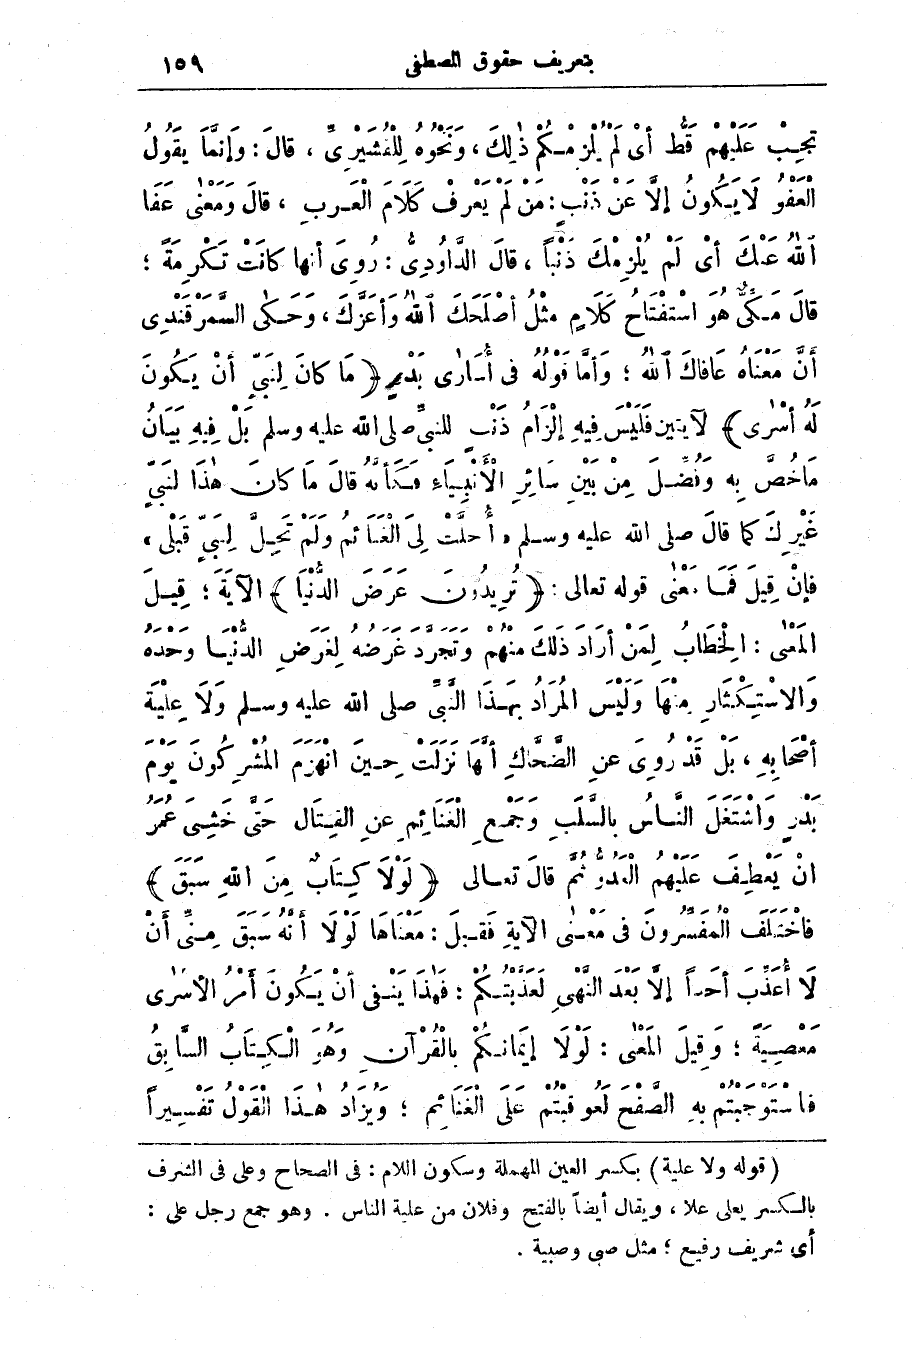 بتعريف حقوق المصطفى ١٥٩
تَجِبْ عَلَيْهِمْ قَطُّ أَىْ لَمْ يُلْزِمْكُمْ ذٰلِكَ، وَنَحْوُهُ لِلْقُشَيْرِىِّ ، قالَ : وَإِنَّمَا يَقُولُ
الْعَفْوُ لَا يَكُونُ إِلَّا عَنْ ذَنْبٍ : مَنْ لَمْ يَعْرِفْ كَلَامَ الْعَرَبِ ، قالَ وَمَعْنٰى عَفَا
اللهُ عَنْكَ أىْ لَمْ يُلْزِمْكَ ذَنْباً ، قالَ الدَّاوُدِىُّ : رُوِىَ أنها كانَتْ تَكْرِمَةً ؛
قالَ مَكِّىٌّ هُوَ اسْتِفْتَاحُ كَلَامٍ مِثْلُ أصْلَحَكَ اللهُ وَأَعَزَّكَ، وَحَكٰى السَّمَرْقَنْدِى
أَنَّ مَعْنَاهُ عَافاكَ اللهُ ؛ وَأمَّا قَوْلُهُ فى أُسَارٰى بَدْرٍ ﴿ مَا كانَ لِنَبِىّ أنْ يَكُونَ
لَهُ أسْرٰى ﴾ لآيتين فَلَيْسَ فِيهِ إلْزَامُ ذَنْبٍ للنبىِّ صلى الله عليه وسلم بَلْ فِيهِ بَيَانُ
مَاخُصَّ بِهِ وَفُضِّلَ مِنْ بَيْنِ سَائِرِ الْأَنْبِيَاءِ فَكَأنهُ قالَ مَا كانَ هٰذَا لنَبِىّ
غَيْرِكَ كما قالَ صلى الله عليه وسلم « أُحلَّتْ لِىَ الْغَنَائمُ وَلَمْ تَحِلَّ لِنَبِىّ قَبْلِى »
فإنْ قِيلَ فَمَا مَعْنٰى قوله تعالى : ﴿ تُرِيدُونَ عَرَضَ الدُّنْيَا ﴾ الآيَةَ ؛ قِيلَ
المَعْنٰى : الْخطَابُ لِمَنْ أرَادَ ذَلكَ منْهُمْ وَتَجَرَّدَ غَرَضُهُ لِغَرَضِ الدُّنْيَا وَحْدَهُ
وَالاسْتِكْثَارِ مِنْهَا وَلَيْسَ المُرَادُ بِهَذَا النَّبِىِّ صلى الله عليه وسلم وَلَا عِلْيَةَ
أصْحَابِهِ ، بَلْ قَدْ رُوِىَ عنِ الضَّحَّاكِ أنهَا نَزَلَتْ حِينَ انْهَزَمَ المُشْرِكُونَ يَوْمَ
بَدْرٍ وَاشْتَغَلَ النَّاسُ بالسَّلَبِ وَجَمْعِ الْغَنَائِمِ عنِ القِتَالِ حَتَّى خَشِىَ عُمَرُ
انْ يَعْطِفَ عَلَيْهِمُ الْعَدُوُّ ثُمَّ قالَ تعالى ﴿ لَوْلَا كِتَابٌ مِنَ اللهِ سَبَقَ ﴾
فاخْتَلَفَ المُفَسِّرُونَ فى مَعْنٰى الآيةِ فَقِيلَ : مَعْنَاهَا لَوْلَا أنَّهُ سَبَقَ مِنِّى أنْ
لَا أُعَذِّبَ أحَداً إلَّا بَعْدَ النَّهْىِ لَعَذَّبْتُكُمْ : فَهٰذَا يَنْفِى أنْ يَكُونَ أمْرُ الأسْرٰى
مَعْصِيَةً ؛ وَقِيلَ المَعْنٰى : لَوْلَا إيمَانُكُمْ بالْقُرْآنِ وَهُوَ الْكِتَابُ السَّابِقُ
فاسْتَوْجَبْتُمْ بِهِ الصَّفْحَ لَعُوقِبْتُم عَلَى الْغَنَائِمِ ؛ وَيُزَادُ هٰذَا الْقَوْلُ تَفْسِيراً
(قوله ولا علية) بكسر العين المهملة وسكون اللام : فى الصحاح وعلى فى الشرف
بالكسر يعلى علا ، ويقال أيضاً بالفتح وفلان من علية الناس . وهو جمع رجل على :
أى شريف رفيع ؛ مثل صبى وصبية .